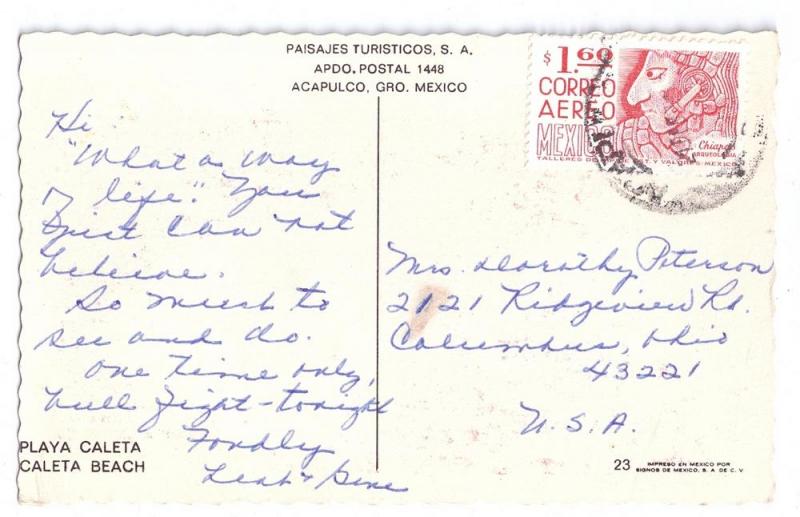 PAISAJES TURISTICOS, S. A.
APDO. POSTAL 1448
ACAPULCO, GRO. MEXICO
$1.60
CORREO
AEREO
MEXICO
Chiapas
ARQUEOLOGIA
TALLERES DE Y VALORES-MEXICO
Hi:
"What a way
of life". You
just can not
believe.
So much to
see and do.
One time only,
bull fight - tonight
Fondly
Leah & Gene
Mrs. Dorothy Peterson
2121 Ridgeview Rd.
Columbus, Ohio
43221
U.S.A.
PLAYA CALETA
CALETA BEACH
23
IMPRESO EN MEXICO POR
SIGNOS DE MEXICO, S. A. DE C. V.